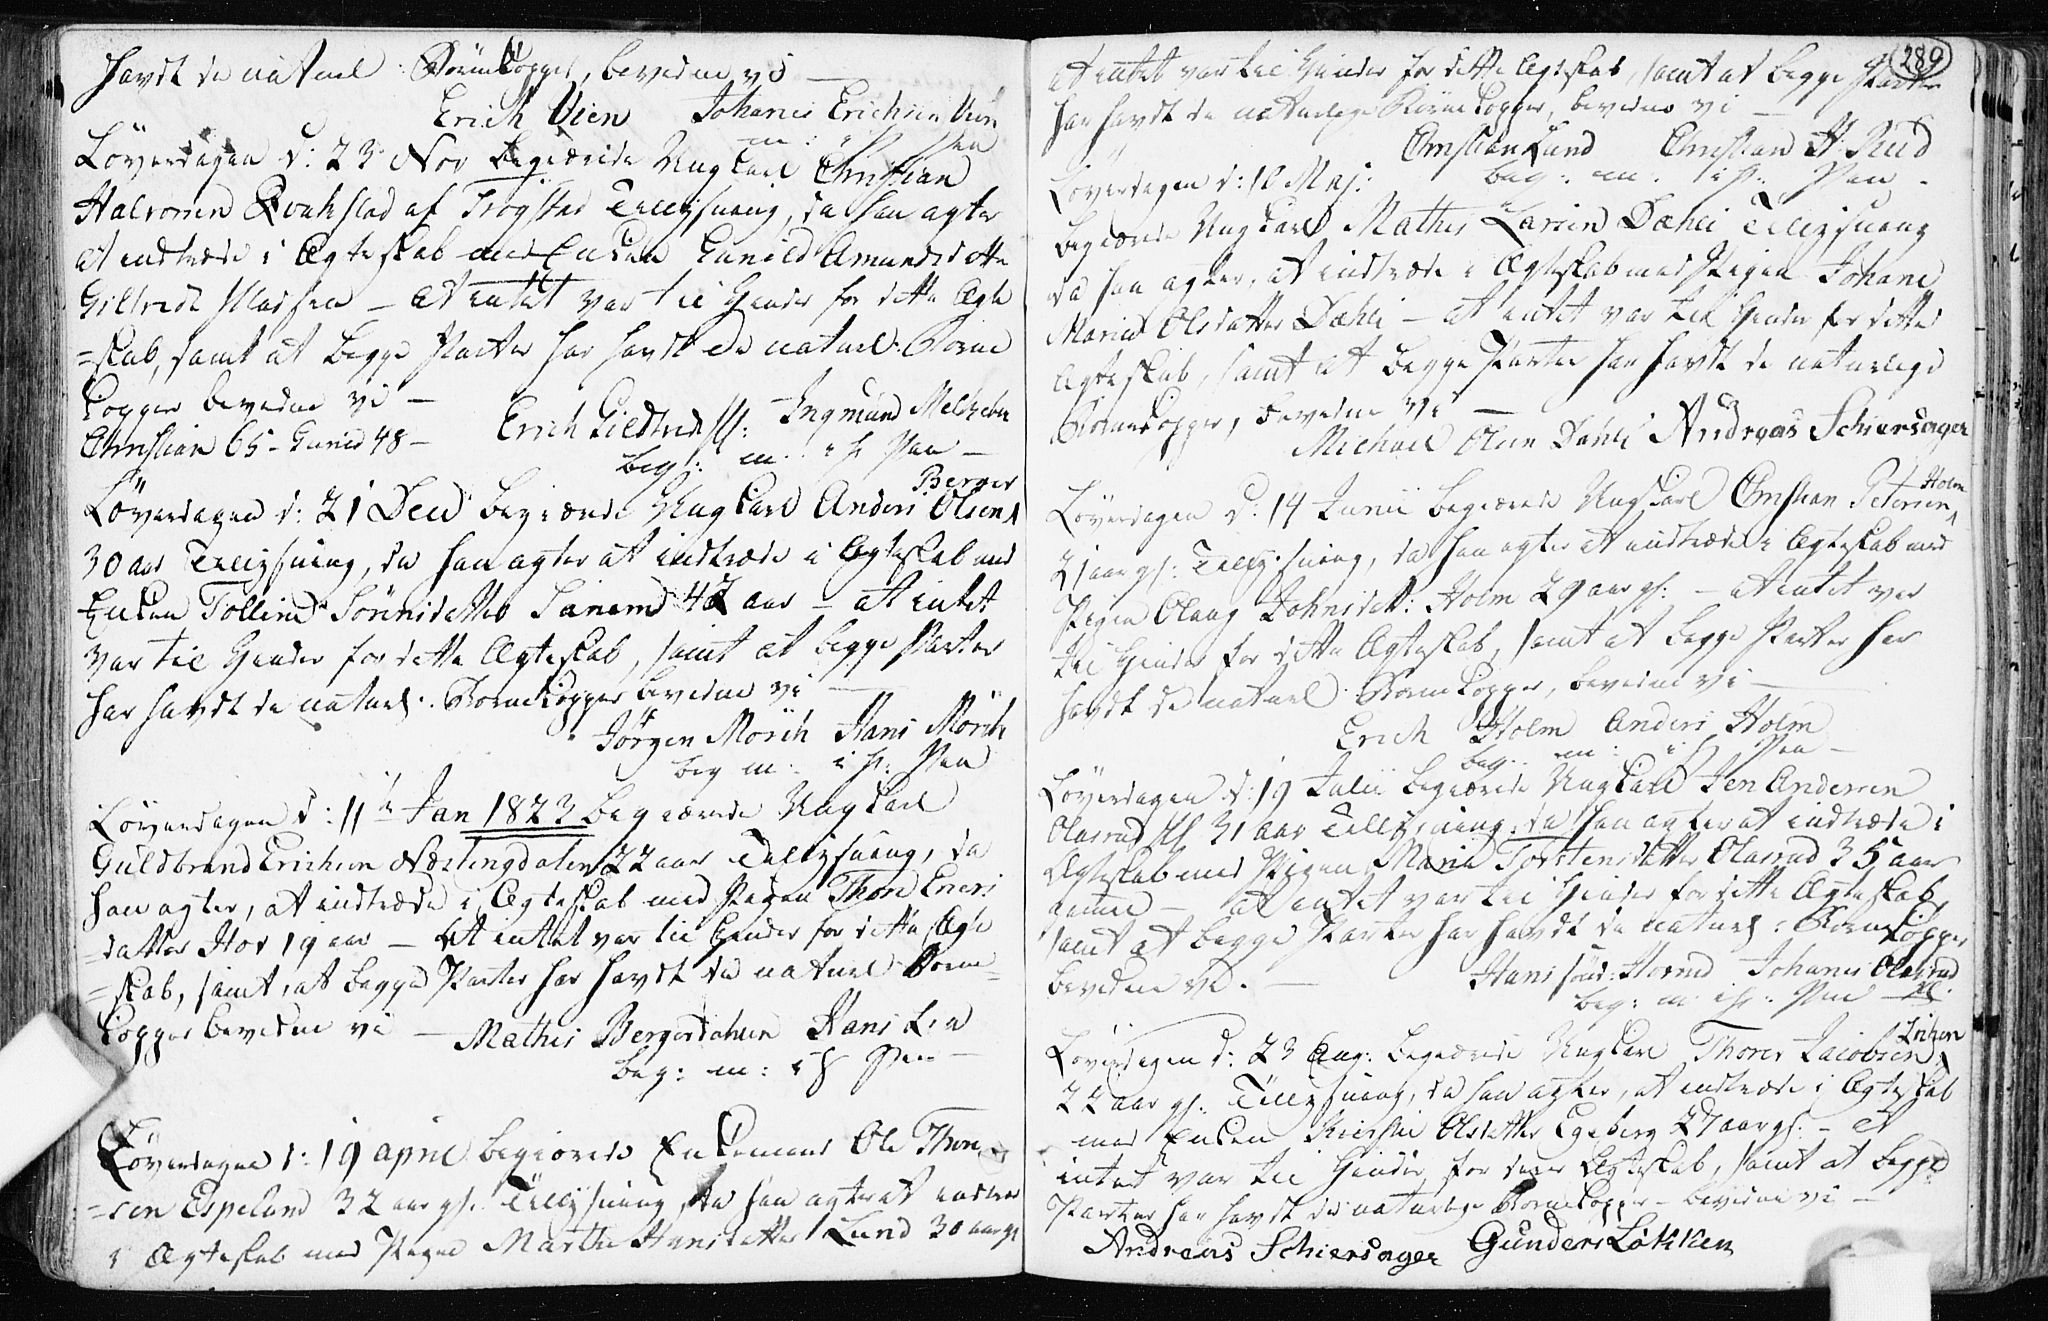 havdt de naturl: Børnekopper, bevidne vi —
Erich Vien Johanes Erichsen Vien
m: Pen
Löverdagen d: 23 Nov begiærede Ungkarl Christian
Halvorsen Kvakslad af Trøgstad Tillysning, da han agter
at indtræde i Ægteskab med Enken Gunild Amundsdatter
Gildtvedt Pladsen — at intet var til Hinder for dette Ægte
=skab, samt at begge Parter har havdt de naturl: Børne
kopper bevidne vi —
Christian 65 - Gunild 48 — Erich Gildtvedt Ingmund Melleby
beg: m: i H: Pen —
Berger
Löverdagen d: 21 Decr begiærede Ungkarl Anders Olsen
30 aar Tillysning, da han agter at indtræde i Ægteskab med
Enken Tolline Sörnisdatter Sanem 42 aar — at intet
var til Hinder for dette Ægteskab, samt at begge Parter
har havdt de naturl: Børnekopper bevidne vi —
Jørgen Mörch Hans Mörch
beg m: i H: Pen
Löverdagen d: 11te Jan 1823 begiærede Ungkarl
Guldbrand Erichsen Næstengdalen 22 aar Tillysning, da
han agter, at indtræde i Ægteskab med Pigen Thore Eners
=datter Hov 19 aar — at intet var til Hinder for dette Ægte
=skab, samt, at begge Parter har havdt de naturl Børne=
kopper bevidne vi — Mathis Bergersdahlen Hans Lia
beg: m: i H Pen —
Löverdagen d: 19 april begiærede Enkemand Ole Thore
=sen Espelund 32 aar gl. Tillysning, da han agter at indtræde
i Ægteskab med Pigen Marthe Hansdatter Lund 30 aar gl
289
at intet var til Hinder for dette Ægteskab, samt at begge Parter
har havdt de naturlige Børnekopper, bevidne vi —
Christian Lund Christian H: Rud
beg: m: i H: Pen -
Löverdagen d: 10 Maj:
begiærede Ungkarl Mathis Larsen Dæhli Tillysning
da han agter, at indtræde i Ægteskab med Pigen Johane
Maria Olsdatter Dæhli — at intet var til Hinder for dette
Ægteskab, samt at begge Parter har havdt de naturlige
Børnekopper, bevidne vi —
Michael Olsen Dahli Andreas Schiersager
Holm
Löverdagen d: 14 Junii begiærede Ungkarl Christian Petersen
21 aar gl: Tillysning, da han agter at indtræde i Ægteskab med
Pigen Olaug Johnsdatt: Holm 29 aar gl: — at intet var
til Hinder for dette Ægteskab, samt at begge Parter har
havdt de naturl: Børnekopper, bevidne vi —
Erich Holm Anders Holm
beg: m: i H Pen —
Löverdagen d: 19 Julii begiærede Ungkarl Jen Andersen
Olasrud Pl 31 aar Tillysning, da han agter at indtræde i
Ægteskab med Pigen Maria Torstensdatter Olasrud 35 aar
gamml — at intet var til Hinder for dette Ægteskab,
samt at begge Parter har havdt de naturl: Børnekopper
bevidne vi. — Hans Hornd Johanes Olasrud
beg: m: i H: Pen — Pl.
Löverdagen d: 23 Aug: begiærede Ungkarl Thorer Jacobsen
22 aar gl: Tillysning, da han agter, at indtræde i Ægteskab
med Enken Kirstie Olsdatter Egeberg 27 aar gl: — at
intet var til Hinder for dette Ægteskab, samt at begge
Parter har havdt de naturlige Børnekopper — bevidne vi —
Andreas Schiersager Gunders Løkken